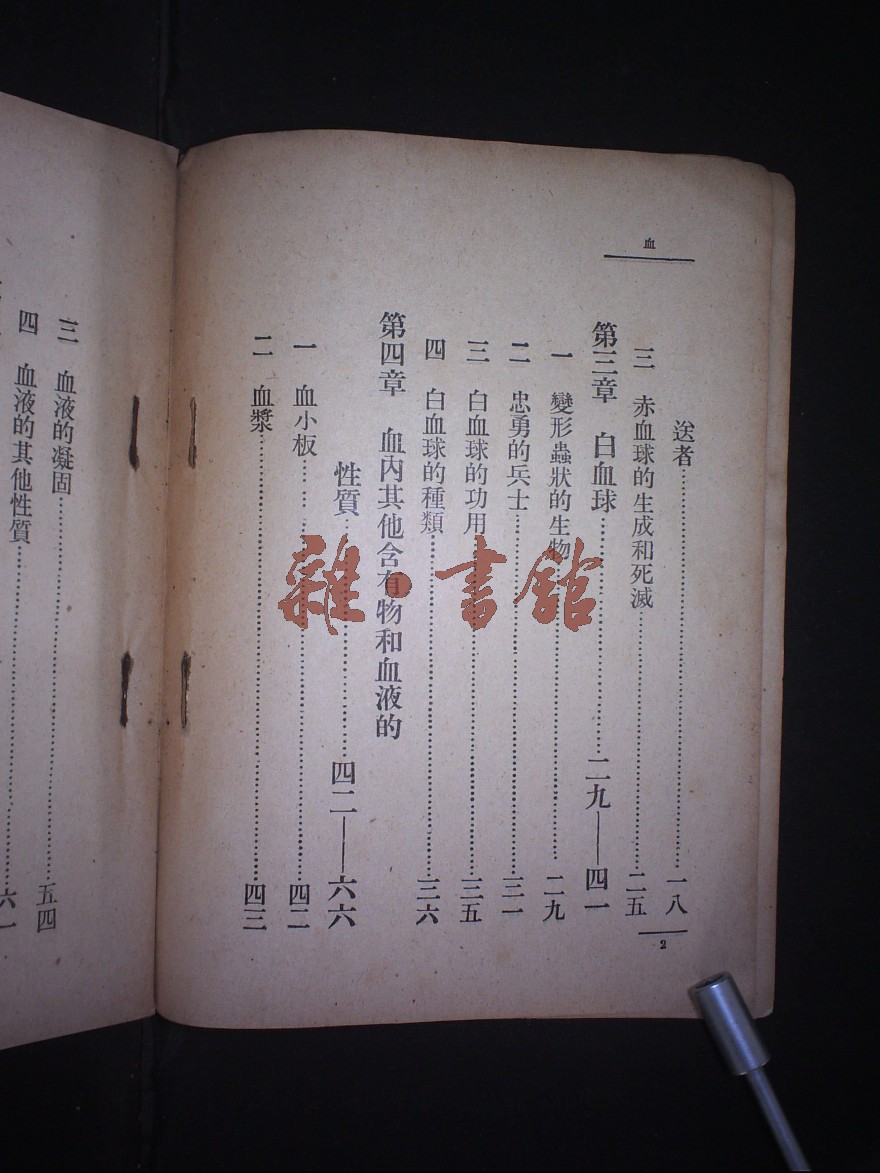 血
送者……一八
三 赤血球的生成和死滅……二五
第三章 白血球……二九——四一
一 變形蟲狀的生物……二九
二 忠勇的兵士……三一
三 白血球的功用……三五
四 白血球的種類……三六
第四章 血內其他含有物和血液的
性質……四二——六六
一 血小板……四二
二 血漿……四三
2
三 血液的凝固……五四
四 血液的其他性質……六一
雜·書館